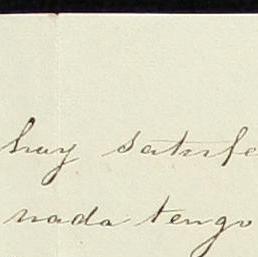 hay satisfe
nada tengo